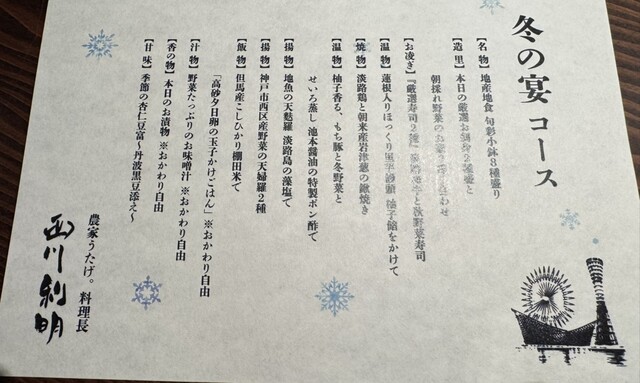 冬の宴 コース
【名 物】地産地食 旬彩小鉢8種盛り
【造 里】本日の厳選お刺身2種盛と
朝採れ野菜のお造り
【お凌ぎ】『厳選寿司2種』
【温 物】蓮根入りほっくり 柚子餡をかけて
【焼 物】淡路鶏と朝来産岩津葱の鍬焼き
【温 物】柚子香る、もち豚と冬野菜と
せいろ蒸し 池本醤油の特製ポン酢で
【揚 物】地魚の天麩羅 淡路島の藻塩で
【揚 物】神戸市西区産野菜の天婦羅2種
【飯 物】但馬産こしひかり棚田米で
「高砂夕日卵の玉子かけごはん」※おかわり自由
【汁 物】野菜たっぷりのお味噌汁 ※おかわり自由
【香の物】本日のお漬物 ※おかわり自由
【甘 味】季節の杏仁豆富〜丹波黒豆添え〜
農家うたげ。料理長
西川利明